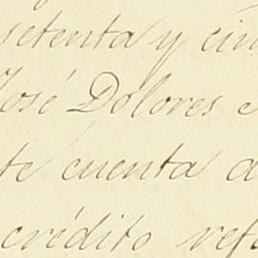 setenta y cin
José Dolores
te cuenta d
crédito ref